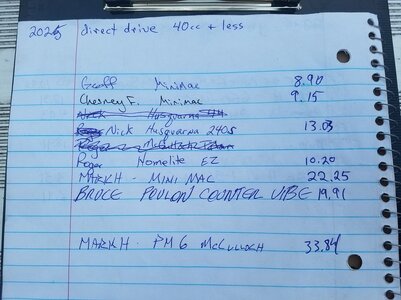 2025 direct drive 40cc + less
Geoff Minimac 8.90
Chesney F. Minimac 9.15
Nick Husqvarna
Nick Husqvarna 240S 13.03
Roger
Roger Homelite EZ 10.20
MARK H - MINI MAC 22.25
BRUCE POULON COUNTER VIBE 19.91
MARK H. PM 6 McCULLOCH 33.84